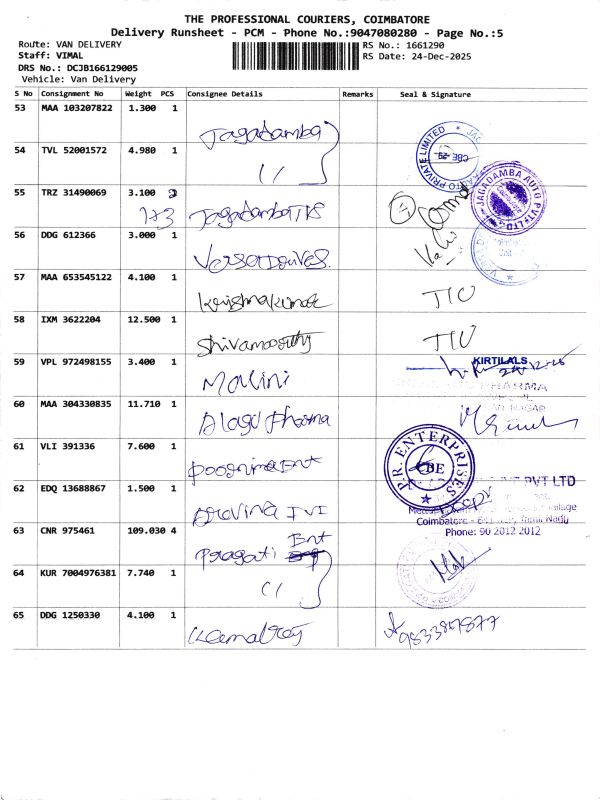 THE PROFESSIONAL COURIERS, COIMBATORE
Delivery Runsheet - PCM - Phone No.:9047080280 - Page No.:5
Route: VAN DELIVERY
Staff: VIMAL
DRS No.: DCJB166129005
Vehicle: Van Delivery
RS No.: 1661290
RS Date: 24-Dec-2025
S No Consignment No Weight PCS Consignee Details Remarks Seal & Signature
53 MAA 103207822 1.300 1 Jagadamba
54 TVL 52001572 4.980 1 11
PRIVATE LIMITED
CBE
55 TRZ 31490069 3.100 2 Jagadamba TVS
1+3
JAGADAMBA AUTO PVT LTD
56 DDG 612366 3.000 1
57 MAA 653545122 4.100 1 Krishnakumar
58 IXM 3622204 12.500 1 Shivamoorthy
59 VPL 972498155 3.400 1 Malini
KIRTILALS
PHARMA
60 MAA 304330835 11.710 1 Alagu Pharma
61 VLI 391336 7.600 1 Poornima Ent
P.R. ENTERPRISES
CBE
62 EDQ 13688867 1.500 1 Aravind IVF
PVT LTD
Coimbatore - Tamil Nadu
Phone: 90 2012 2012
63 CNR 975461 109.030 4 Pragati Ent
64 KUR 7004976381 7.740 1 11
65 DDG 1250330 4.100 1 Kamalraj